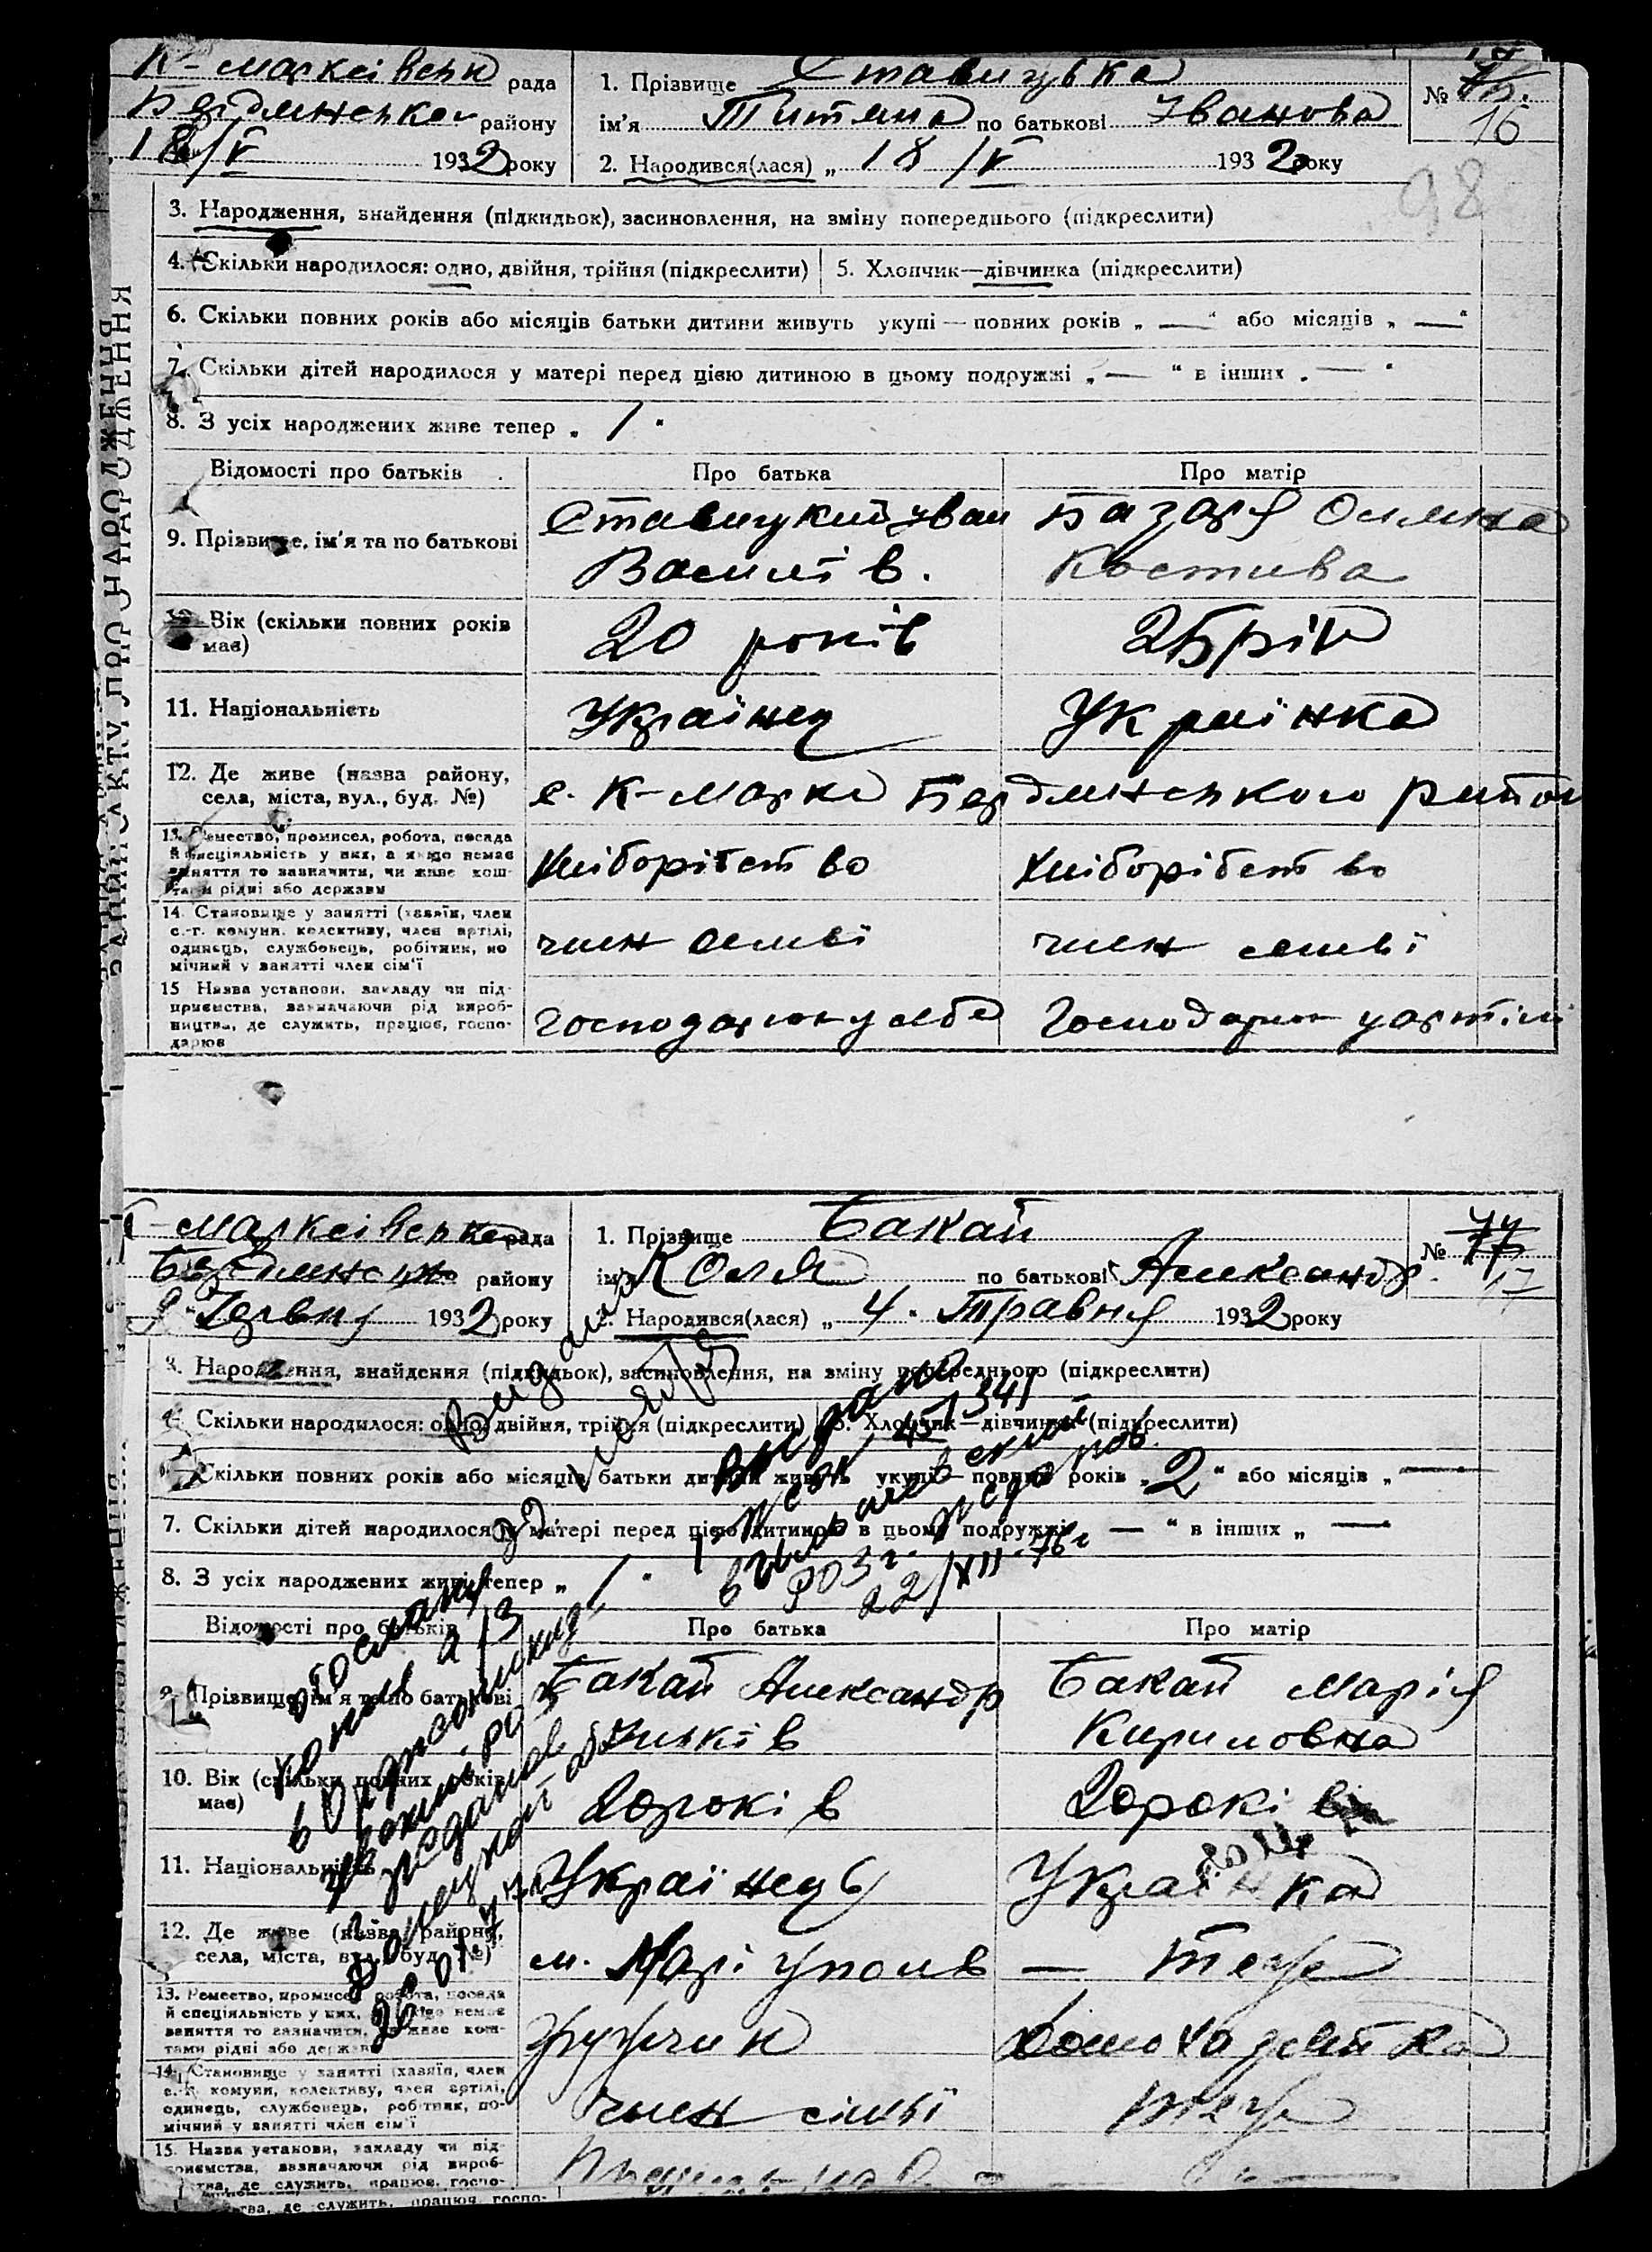 К-марксівська рада
Бердянського району
18/V 1932 року
1. Прізвище Ставицька
ім'я Титяна по батькові Іванова
2. Народився(лася) „ 18/V 1932 року
№ 16
98
3. Народження, знайдення (підкидьок), засиновлення, на зміну попереднього (підкреслити)
4. Скільки народилося: одно, двійня, трійня (підкреслити) 5. Хлопчик—дівчинка (підкреслити)
6. Скільки повних років або місяців батьки дитини живуть укупі — повних років „ — “ або місяців „ — “
7. Скільки дітей народилося у матері перед цією дитиною в цьому подружжі „ — “ в інших „ — “
8. З усіх народжених живе тепер „ 1 “
Відомості про батьків Про батька Про матір
9. Прізвище, ім'я та по батькові Ставицкий Іван Василів. Костива
10. Вік (скільки повних років має) 20 років 25 рік
11. Національність Українец Українка
12. Де живе (назва району, села, міста, вул., буд. №) с. К-Маркс Бердянського район
13. Ремество, промисел, робота, посада й спеціяльність у них, а якщо немає заняття то зазначити, чи живе коштами рідні або держави Хліборобство Хліборобство
14. Становище у занятті (хазяїн, член с.-г. комуни, колективу, член артілі, одинець, службовець, робітник, помічний у занятті член сім'ї член семьї член семьї
15 Назва установи, закладу чи підприємства, зазначаючи рід виробництва, де служить, працює, господарює у себе у артілі
-марксівська рада
Бердянського району
9 Червня 1932 року
1. Прізвище Бакай
ім'я Коля по батькові Александр.
2. Народився(лася) „ 4 “ Травня 1932 року
№ 17
3. Народження, знайдення (підкидьок), засиновлення, на зміну попереднього (підкреслити)
4. Скільки народилося: одно, двійня, трійня (підкреслити) 5. Хлопчик—дівчинка (підкреслити)
6. Скільки повних років або місяців батьки дитини живуть укупі — повних років „ 2 “ або місяців „ —
7. Скільки дітей народилося у матері перед цією дитиною в цьому подружжі „ — “ в інших „ —
8. З усіх народжених живе тепер „ 1 “
22/XII-76г
Відомості про батьків Про батька Про матір
9. Прізвище, ім'я та по батькові Бакай Александр Бакай Марія Кириловна
10. Вік (скільки повних років має) 20 років 20 років
11. Національність Українець Українка
12. Де живе (назва району, села, міста, вул., буд. №) м. Маріуполь — теж
13. Ремество, промисел, робота, посада й спеціяльність у них, якщо немає заняття то зазначити, чи живе коштами рідні або держави Грузчик Домохазяйка
14. Становище у занятті (хазяїн, член с.-г. комуни, колективу, член артілі, одинець, службовець, робітник, помічний у занятті член сім'ї член сімьї теж
15. Назва установи, закладу чи підприємства, зазначаючи рід виробництва, де служить, працює, госпо-